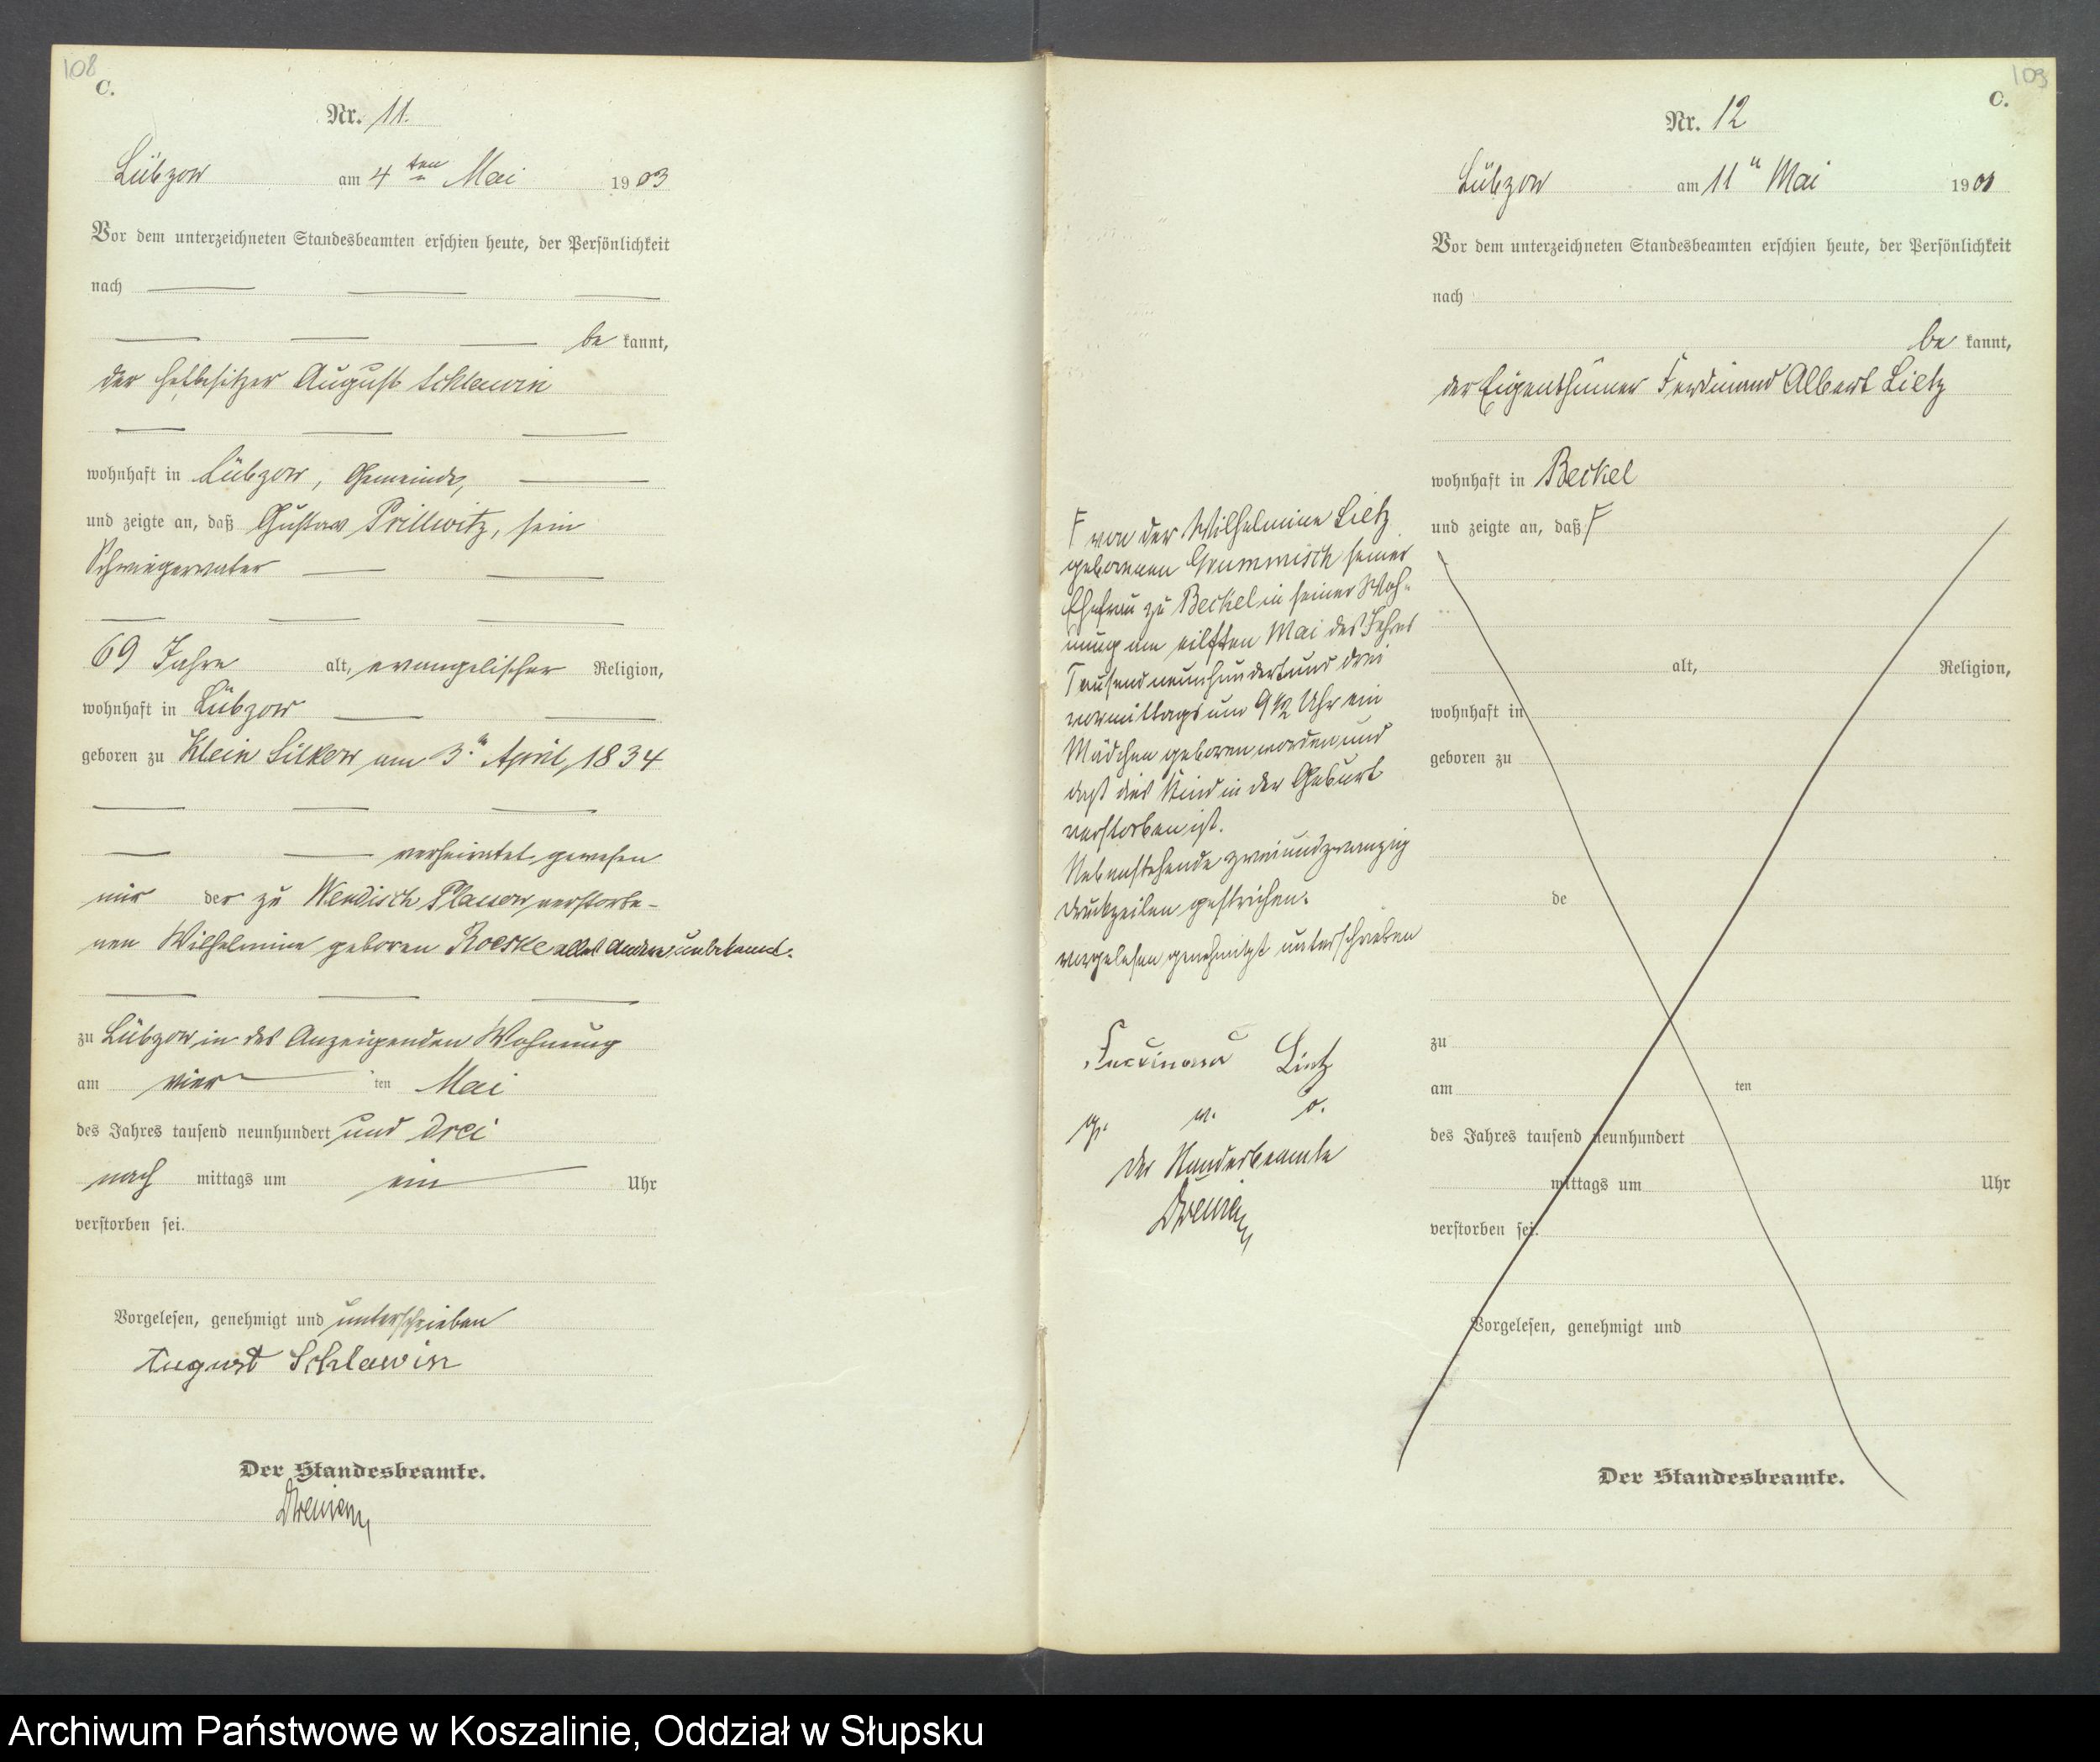 108
C.
Nr. 11.
Lübzow am 4ten Mai 1903
Vor dem unterzeichneten Standesbeamten erschien heute, der Persönlichkeit
nach
be kannt,
der August Schlawin
wohnhaft in Lübzow, Gemeinde,
und zeigte an, daß Gustav Prillwitz, sein
Schwiegervater
69 Jahre alt, evangelischer Religion,
wohnhaft in Lübzow
geboren zu Klein Silkow am 3. April, 1834
verheiratet gewesen
mit der zu Wendisch Plassow verstorbe-
nen Wilhelmine geboren Roeske alles andere unbekannt.
zu Lübzow in des Anzeigenden Wohnung
am vier ten Mai
des Jahres tausend neunhundert und drei
nach mittags um ein Uhr
verstorben sei.
Vorgelesen, genehmigt und unterschrieben
August Schlawin
Der Standesbeamte.
109
C.
Nr. 12
Lübzow am 11 Mai 190
Vor dem unterzeichneten Standesbeamten erschien heute, der Persönlichkeit
nach
be kannt,
der Eigenthümer Ferdinand Albert Lietz
wohnhaft in Beckel
und zeigte an, daß F
alt, Religion,
wohnhaft in
geboren zu
de
zu
am ten
des Jahres tausend neunhundert
mittags um Uhr
verstorben sei.
Vorgelesen, genehmigt und
Der Standesbeamte.
F von der Wilhelmine Lietz
geborenen Grummisch seiner
Ehefrau zu Beckel in seiner Woh-
nung am eilften Mai des Jahres
Tausend neunhundert und drei
vormittags um 9 1/2 Uhr ein
Mädchen geboren worden und
daß dies Kind in der Geburt
verstorben ist.
Nebenstehende zweiundzwanzig
Druckzeilen gestrichen.
vorgelesen genehmigt unterschrieben
Ferdinand Lietz
g. w. o.
Der Standesbeamte
Archiwum Państwowe w Koszalinie, Oddział w Słupsku